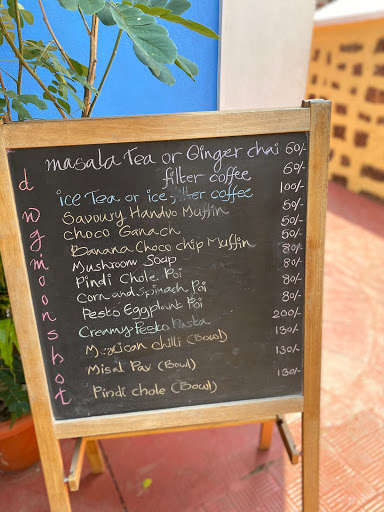 masala Tea or Ginger chai 60/-
filter coffee 60/-
ice Tea or ice filter coffee 100/-
Savoury Handvo Muffin 50/-
Choco Ganach 50/-
Banana Choco chip Muffin 50/-
Mushroom Soap 80/-
Pindi Chole Poi 80/-
Corn and Spinach Poi 80/-
Pesto Eggplant Poi 80/-
Creamy Pesto Pasta 200/-
Mexican chilli (Bowl) 130/-
Misal Pav (Bowl) 130/-
Pindi chole (Bowl) 130/-
d
w
g
m
o
o
n
s
h
o
t